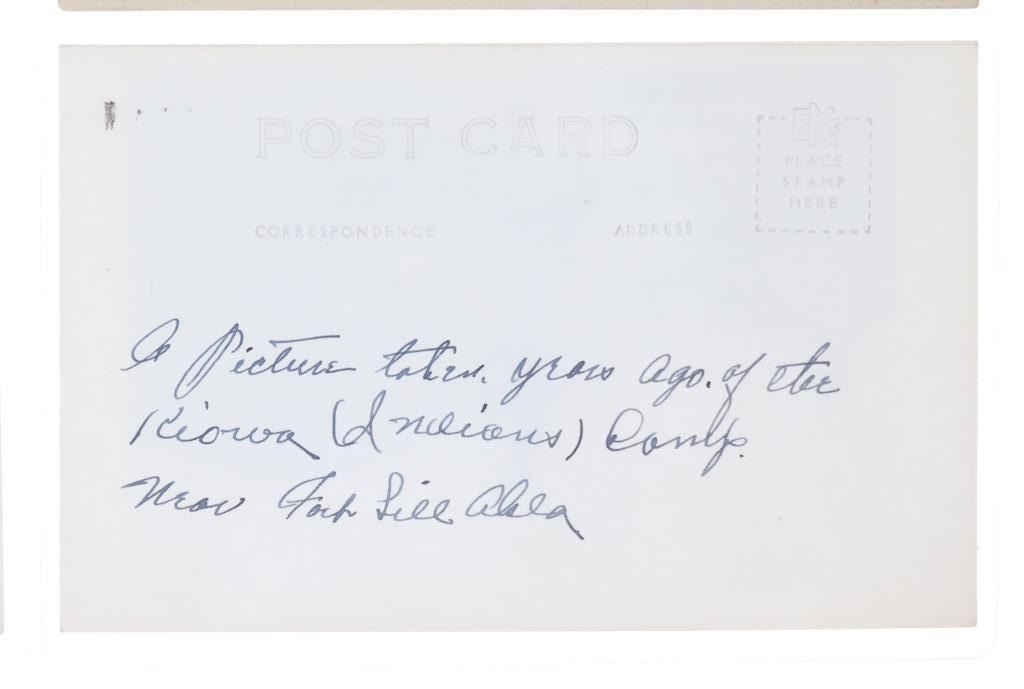 POST CARD
EK
PLACE
STAMP
HERE
CORRESPONDENCE
ADDRESS
A Picture taken. years ago. of the
Kiowa (Indians) Camp.
Near Fort Sill Okla